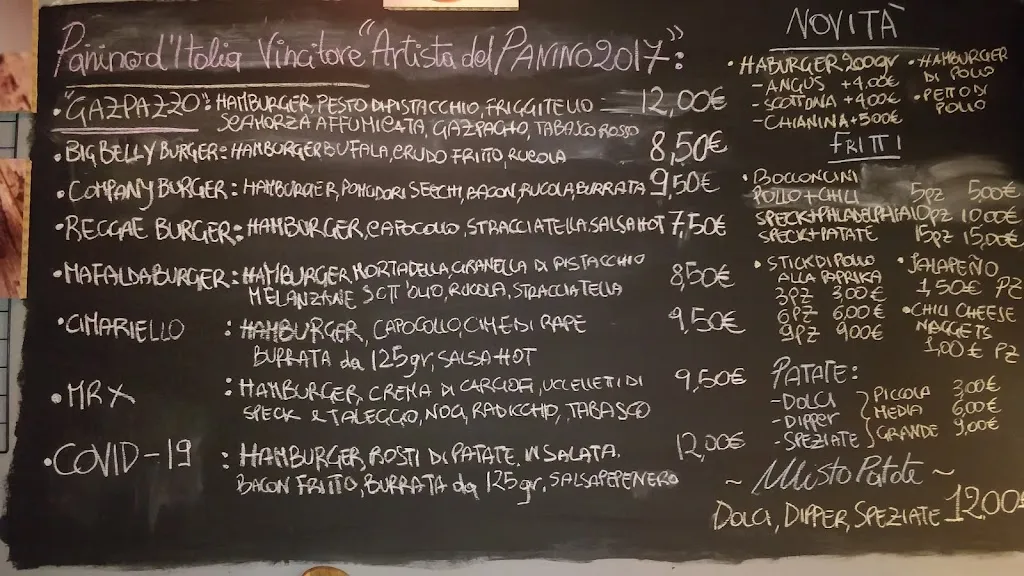 Panino d'Italia Vincitore "Artista del PANINO 2017":
• "GAZPAZZO": HAMBURGER, PESTO DI PISTACCHIO, FRIGGITELLO 12,00€
SCAMORZA AFFUMICATA, GAZPACHO, TABASCO ROSSO
• BIG BELLY BURGER: HAMBURGER BUFALA, CRUDO FRITTO, RUCOLA 8,50€
• COMPANY BURGER: HAMBURGER, POMODORI SECCHI, BACON, RUCOLA BURRATA 9,50€
• REGGAE BURGER: HAMBURGER, CAPOCOLLO, STRACCIATELLA, SALSA HOT 7,50€
• MAFALDA BURGER: HAMBURGER MORTADELLA, GRANELLA DI PISTACCHIO 8,50€
MELANZANE SOTT'OLIO, RUCOLA, STRACCIATELLA
• CIMARIELLO : HAMBURGER, CAPOCOLLO, CIME DI RAPE 9,50€
BURRATA da 125gr, SALSA HOT
• MR X : HAMBURGER, CREMA DI CARCIOFI, UCCELLETTI DI 9,50€
SPECK & TALEGGIO, NOCI, RADICCHIO, TABASCO
• COVID-19 : HAMBURGER, ROSTI DI PATATE, INSALATA, 12,00€
BACON FRITTO, BURRATA da 125gr, SALSA PEPE NERO
NOVITÀ
• HABURGER 200GR
- ANGUS +4,00€
- SCOTTONA +4,00€
- CHIANINA +5,00€
• HAMBURGER
DI POLLO
• PETTO DI
POLLO
FRITTI
• BOCCONCINI
POLLO + CHILI 5pz 5,00€
SPECK + PHILADELPHIA 10pz 10,00€
SPECK + PATATE 15pz 15,00€
• STICK DI POLLO
ALLA PAPRIKA
3pz 3,00€
6pz 6,00€
9pz 9,00€
• JALAPEÑO
1,50€ PZ
• CHILI CHEESE
NAGGETS
1,00€ PZ
PATATE:
- DOLCI PICCOLA 3,00€
- DIPPER MEDIA 6,00€
- SPEZIATE GRANDE 9,00€
~ Misto Patate ~
DOLCI, DIPPER, SPEZIATE 12,00€